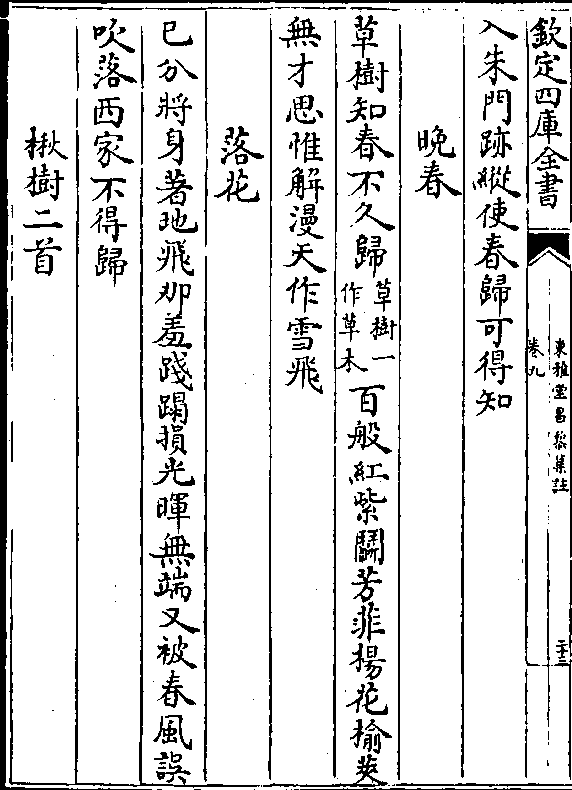 欽定四庫全書
東雅堂昌黎集註
卷九
二十三
入朱門跡縱使春歸可得知
晚春
草樹知春不久歸草樹一作草木百般紅紫鬭芳菲楊花榆莢
無才思惟解漫天作雪飛
落花
已分將身著地飛那羞踐蹋損光暉無端又被春風誤
吹落西家不得歸
楸樹二首